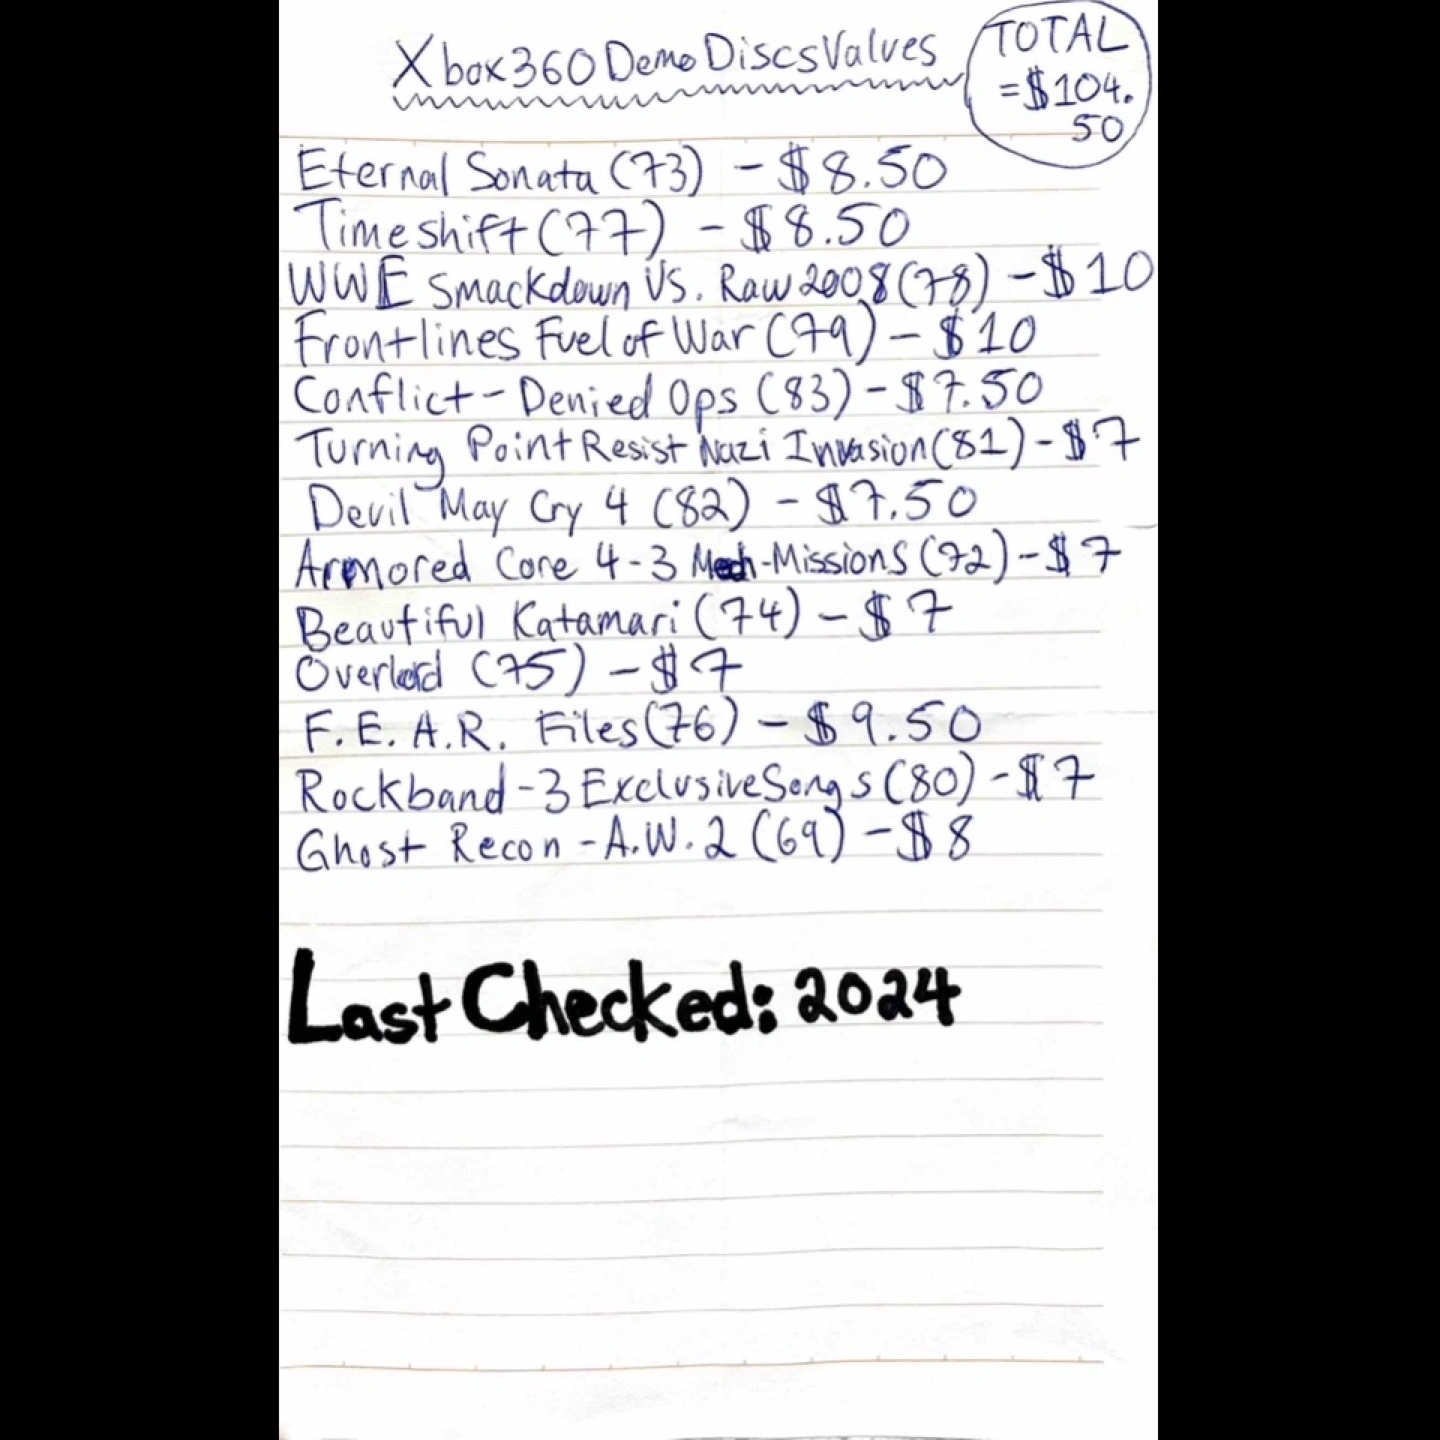 Xbox360 Demo Discs Values
TOTAL
=$104.
50
Eternal Sonata (73) - $8.50
Timeshift (77) - $8.50
WWE Smackdown VS. Raw 2008 (78) - $10
Frontlines Fuel of War (79) - $10
Conflict - Denied Ops (83) - $7.50
Turning Point Resist Nazi Invasion (81) - $7
Devil May Cry 4 (82) - $7.50
Armored Core 4 - 3 Mech-Missions (72) - $7
Beautiful Katamari (74) - $7
Overlord (75) - $7
F.E.A.R. Files (76) - $9.50
Rockband - 3 Exclusive Songs (80) - $7
Ghost Recon - A.W.2 (69) - $8
Last Checked: 2024